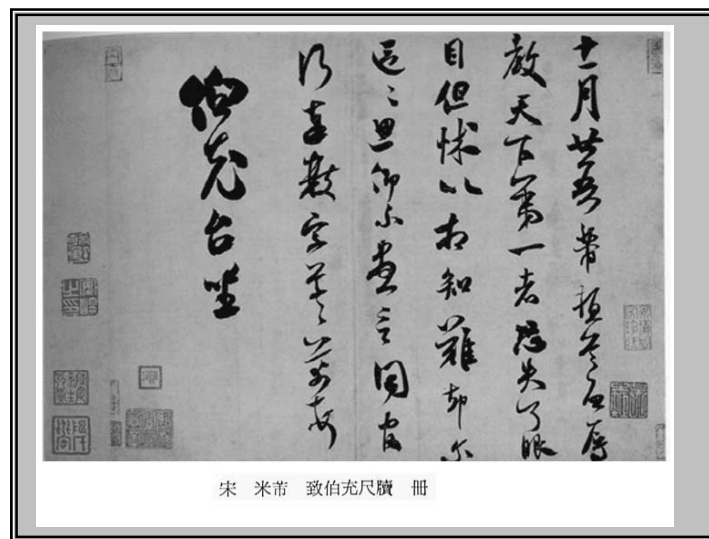 十一月廿五日芾頓首啓辱
教天下第一者恐失了眼
目但怵以相知難却尔
區〻思仰不盡言同官
行奉數字草〻芾頓首
伯充台坐
宋 米芾 致伯充尺牘 冊